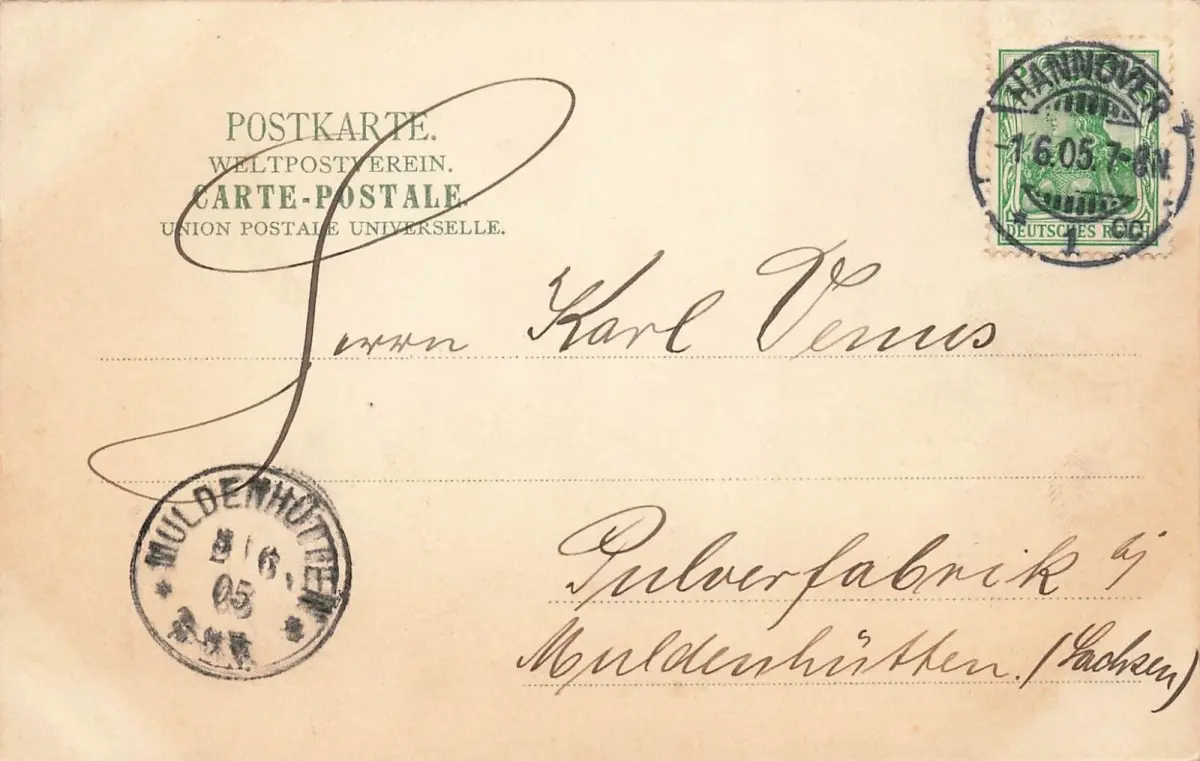 POSTKARTE.
WELTPOSTVEREIN.
CARTE-POSTALE.
UNION POSTALE UNIVERSELLE.
HANNOVER
-1.6.05.7-8N.
* 1 cc
DEUTSCHES REICH
Herrn Karl Venus
Pulverfabrik b/
Muldenhütten. (Sachsen)
* MULDENHÜTTEN *
6.
05